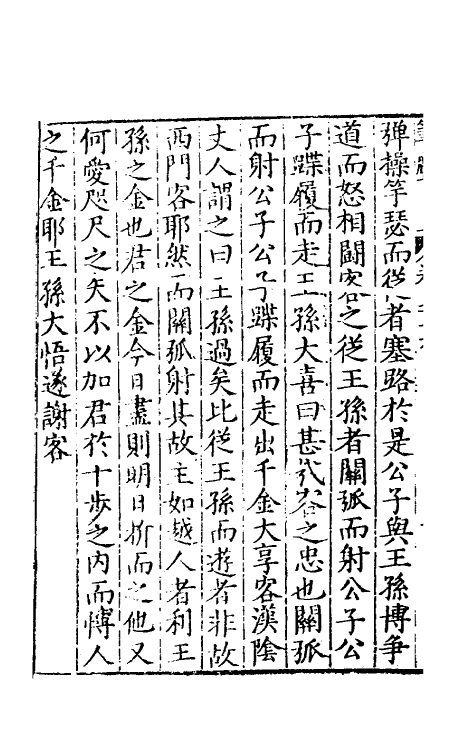 彈操竽瑟而從者塞路於是公子與王孫博爭
道而怒相鬪客之從王孫者關弧而射公子公
子蹀履而走王孫大喜曰甚哉客之忠也關弧
而射公子公子蹀履而走出千金大享客漢陰
丈人謂之曰王孫過矣此從王孫而遊者非故
西門客耶然而關弧射其故主如越人者利王
孫之金也君之金今日盡則明日折而之他又
何愛咫尺之矢不以加君於十步之內而愽人
之千金耶王孫大悟遂謝客